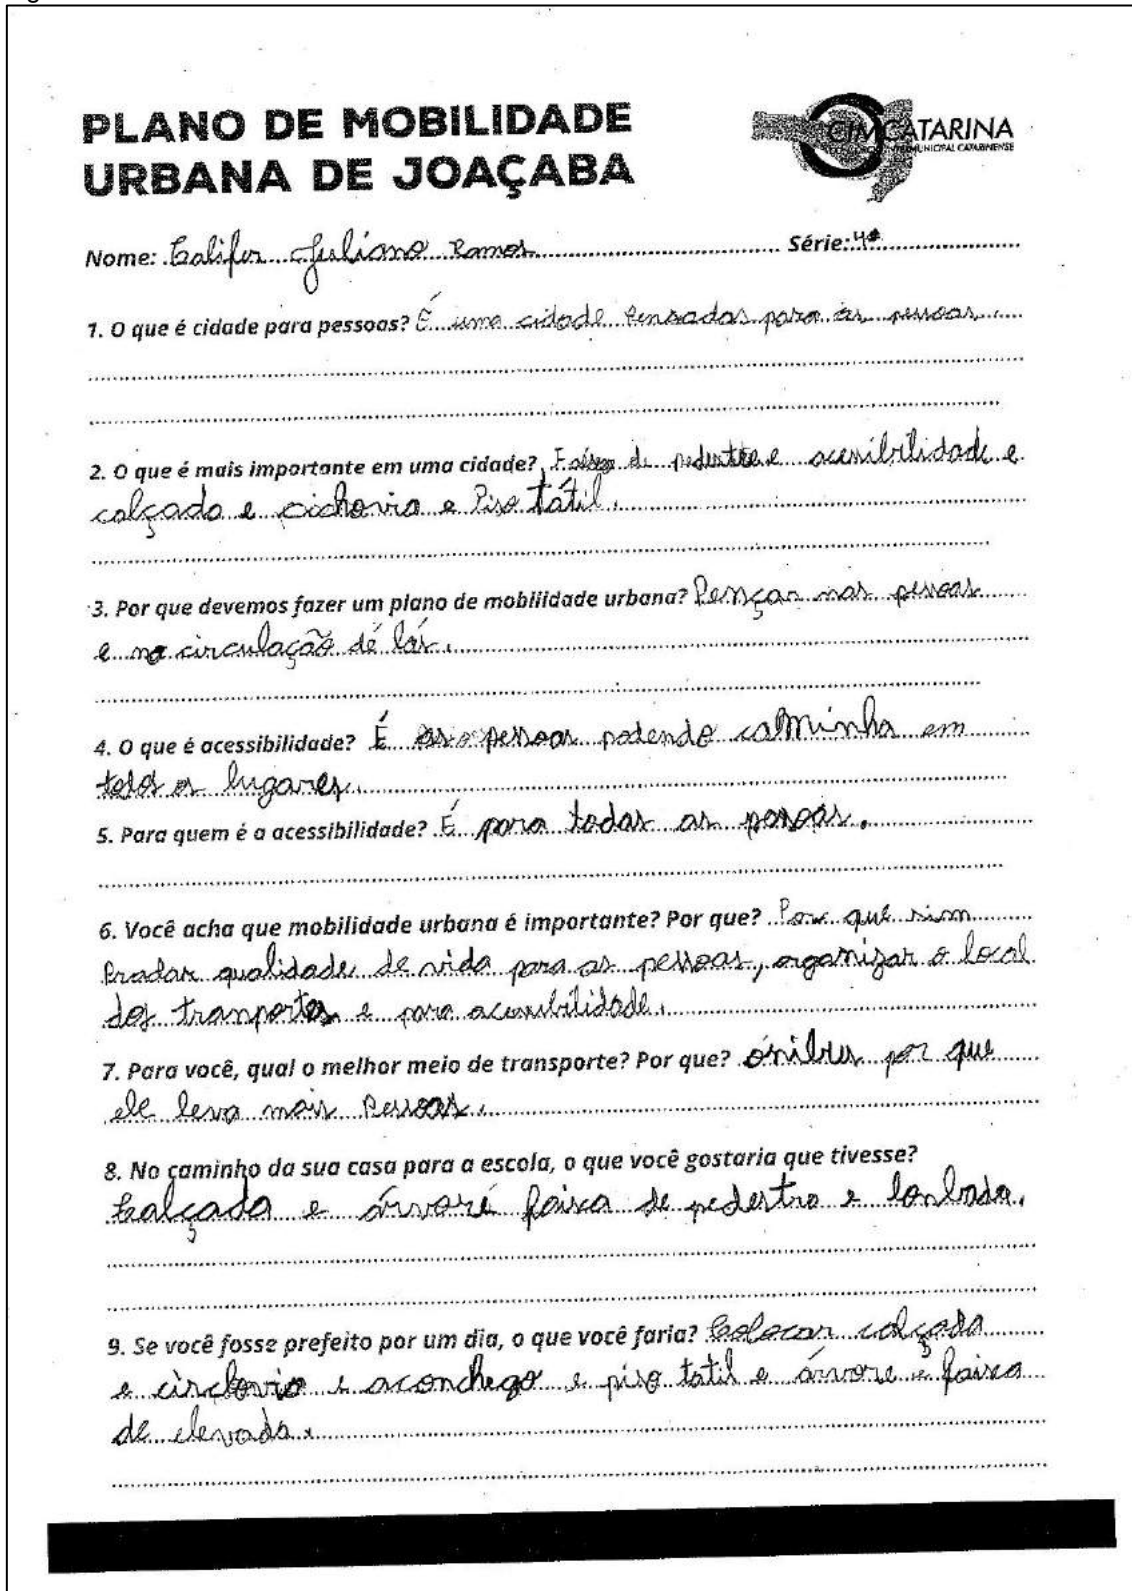 PLANO DE MOBILIDADE
URBANA DE JOAÇABA
CIMCATARINA
Nome: Juliano Ramos Série: 4ª
1. O que é cidade para pessoas? É uma cidade Pensadas para as pessoas.
2. O que é mais importante em uma cidade? Faixa de pedestre e acessibilidade e
calçada e ciclovia e Piso tátil.
3. Por que devemos fazer um plano de mobilidade urbana? Pençar nas pessoas
e na circulação dé lár.
4. O que é acessibilidade? É as pessoas podendo calminha em
todos os lugares.
5. Para quem é a acessibilidade? É para todas as pessoas.
6. Você acha que mobilidade urbana é importante? Por que? Por que
qualidade de vida para as pessoas, organizar o local
dos tranportes e para acessibilidade.
7. Para você, qual o melhor meio de transporte? Por que? ônibus por que
ele leva mais Pessoas.
8. No caminho da sua casa para a escola, o que você gostaria que tivesse?
Calçada e árvoré faixa de pedestro e lonbada.
9. Se você fosse prefeito por um dia, o que você faria? Colocar calçada
e circlovia e aconchego e piso tatil e árvore e faixa
de elevada.